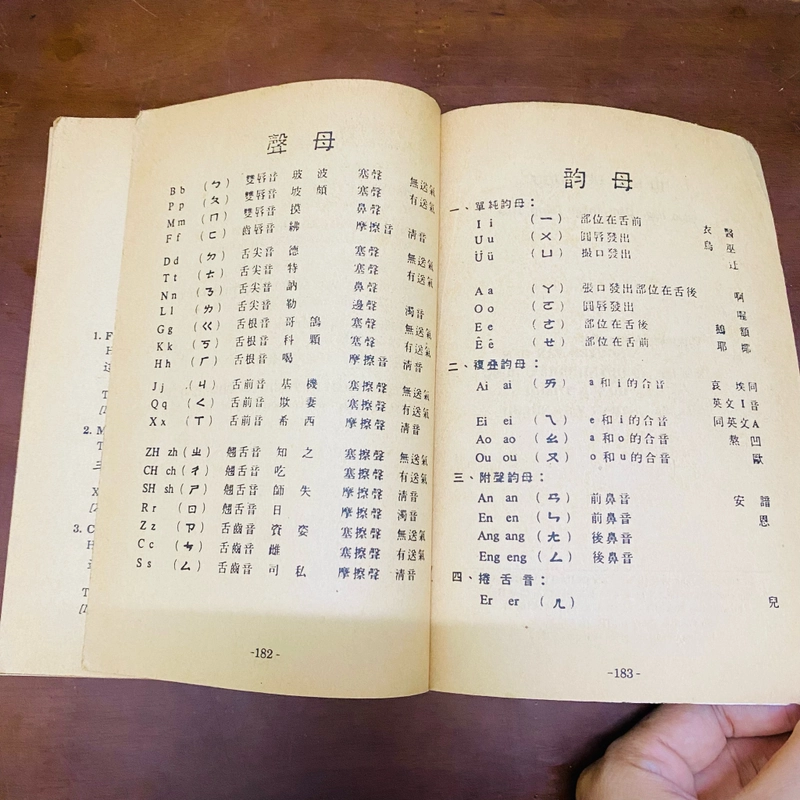 1. F
H
这
T
[2
2. M
T
三
X
[2
3. C
H
这
T
[2
聲 母
B b (ㄅ) 雙唇音 玻 波 塞聲 無送氣
P p (ㄆ) 雙唇音 坡 頗 塞聲 有送氣
M m (ㄇ) 雙唇音 摸 鼻聲
F f (ㄈ) 齒唇音 摩擦音 清音
D d (ㄉ) 舌尖音 德 塞聲 無送氣
T t (ㄊ) 舌尖音 特 塞聲 有送氣
N n (ㄋ) 舌尖音 訥 鼻聲
L l (ㄌ) 舌尖音 勒 邊聲 濁音
G g (ㄍ) 舌根音 哥 鴿 塞聲 無送氣
K k (ㄎ) 舌根音 科 顆 塞聲 有送氣
H h (ㄏ) 舌根音 喝 摩擦音 清音
J j (ㄐ) 舌前音 基 機 塞擦聲 無送氣
Q q (ㄑ) 舌前音 欺 妻 塞擦聲 有送氣
X x (ㄒ) 舌前音 希 西 摩擦聲 清音
ZH zh (ㄓ) 翹舌音 知 之 塞擦聲 無送氣
CH ch (ㄔ) 翹舌音 吃 塞擦聲 有送氣
SH sh (ㄕ) 翹舌音 師 失 摩擦聲 清音
R r (ㄖ) 翹舌音 日 摩擦聲 濁音
Z z (ㄗ) 舌齒音 資 姿 塞擦聲 無送氣
C c (ㄘ) 舌齒音 雌 塞擦聲 有送氣
S s (ㄙ) 舌齒音 司 私 摩擦聲 清音
-182-
韵 母
一、單純韵母：
I i (一) 部位在舌前 衣 醫
U u (ㄨ) 圓唇發出 烏 巫
Ü ü (ㄩ) 撮口發出 迂
A a (ㄚ) 張口發出部位在舌後 啊
O o (ㄛ) 圓唇發出 喔
E e (ㄜ) 部位在舌後 鵝 額
Ê ê (ㄝ) 部位在舌前 耶 椰
二、複叠韵母：
Ai ai (ㄞ) a 和 i 的合音 哀 埃同
英文 I 音
Ei ei (ㄟ) e 和 i 的合音 同英文A
Ao ao (ㄠ) a 和 o 的合音 熬 凹
Ou ou (ㄡ) o 和 u 的合音 歐
三、附聲韵母：
An an (ㄢ) 前鼻音 安 諳
En en (ㄣ) 前鼻音 恩
Ang ang (ㄤ) 後鼻音
Eng eng (ㄥ) 後鼻音
四、捲舌音：
Er er (ㄦ) 兒
-183-